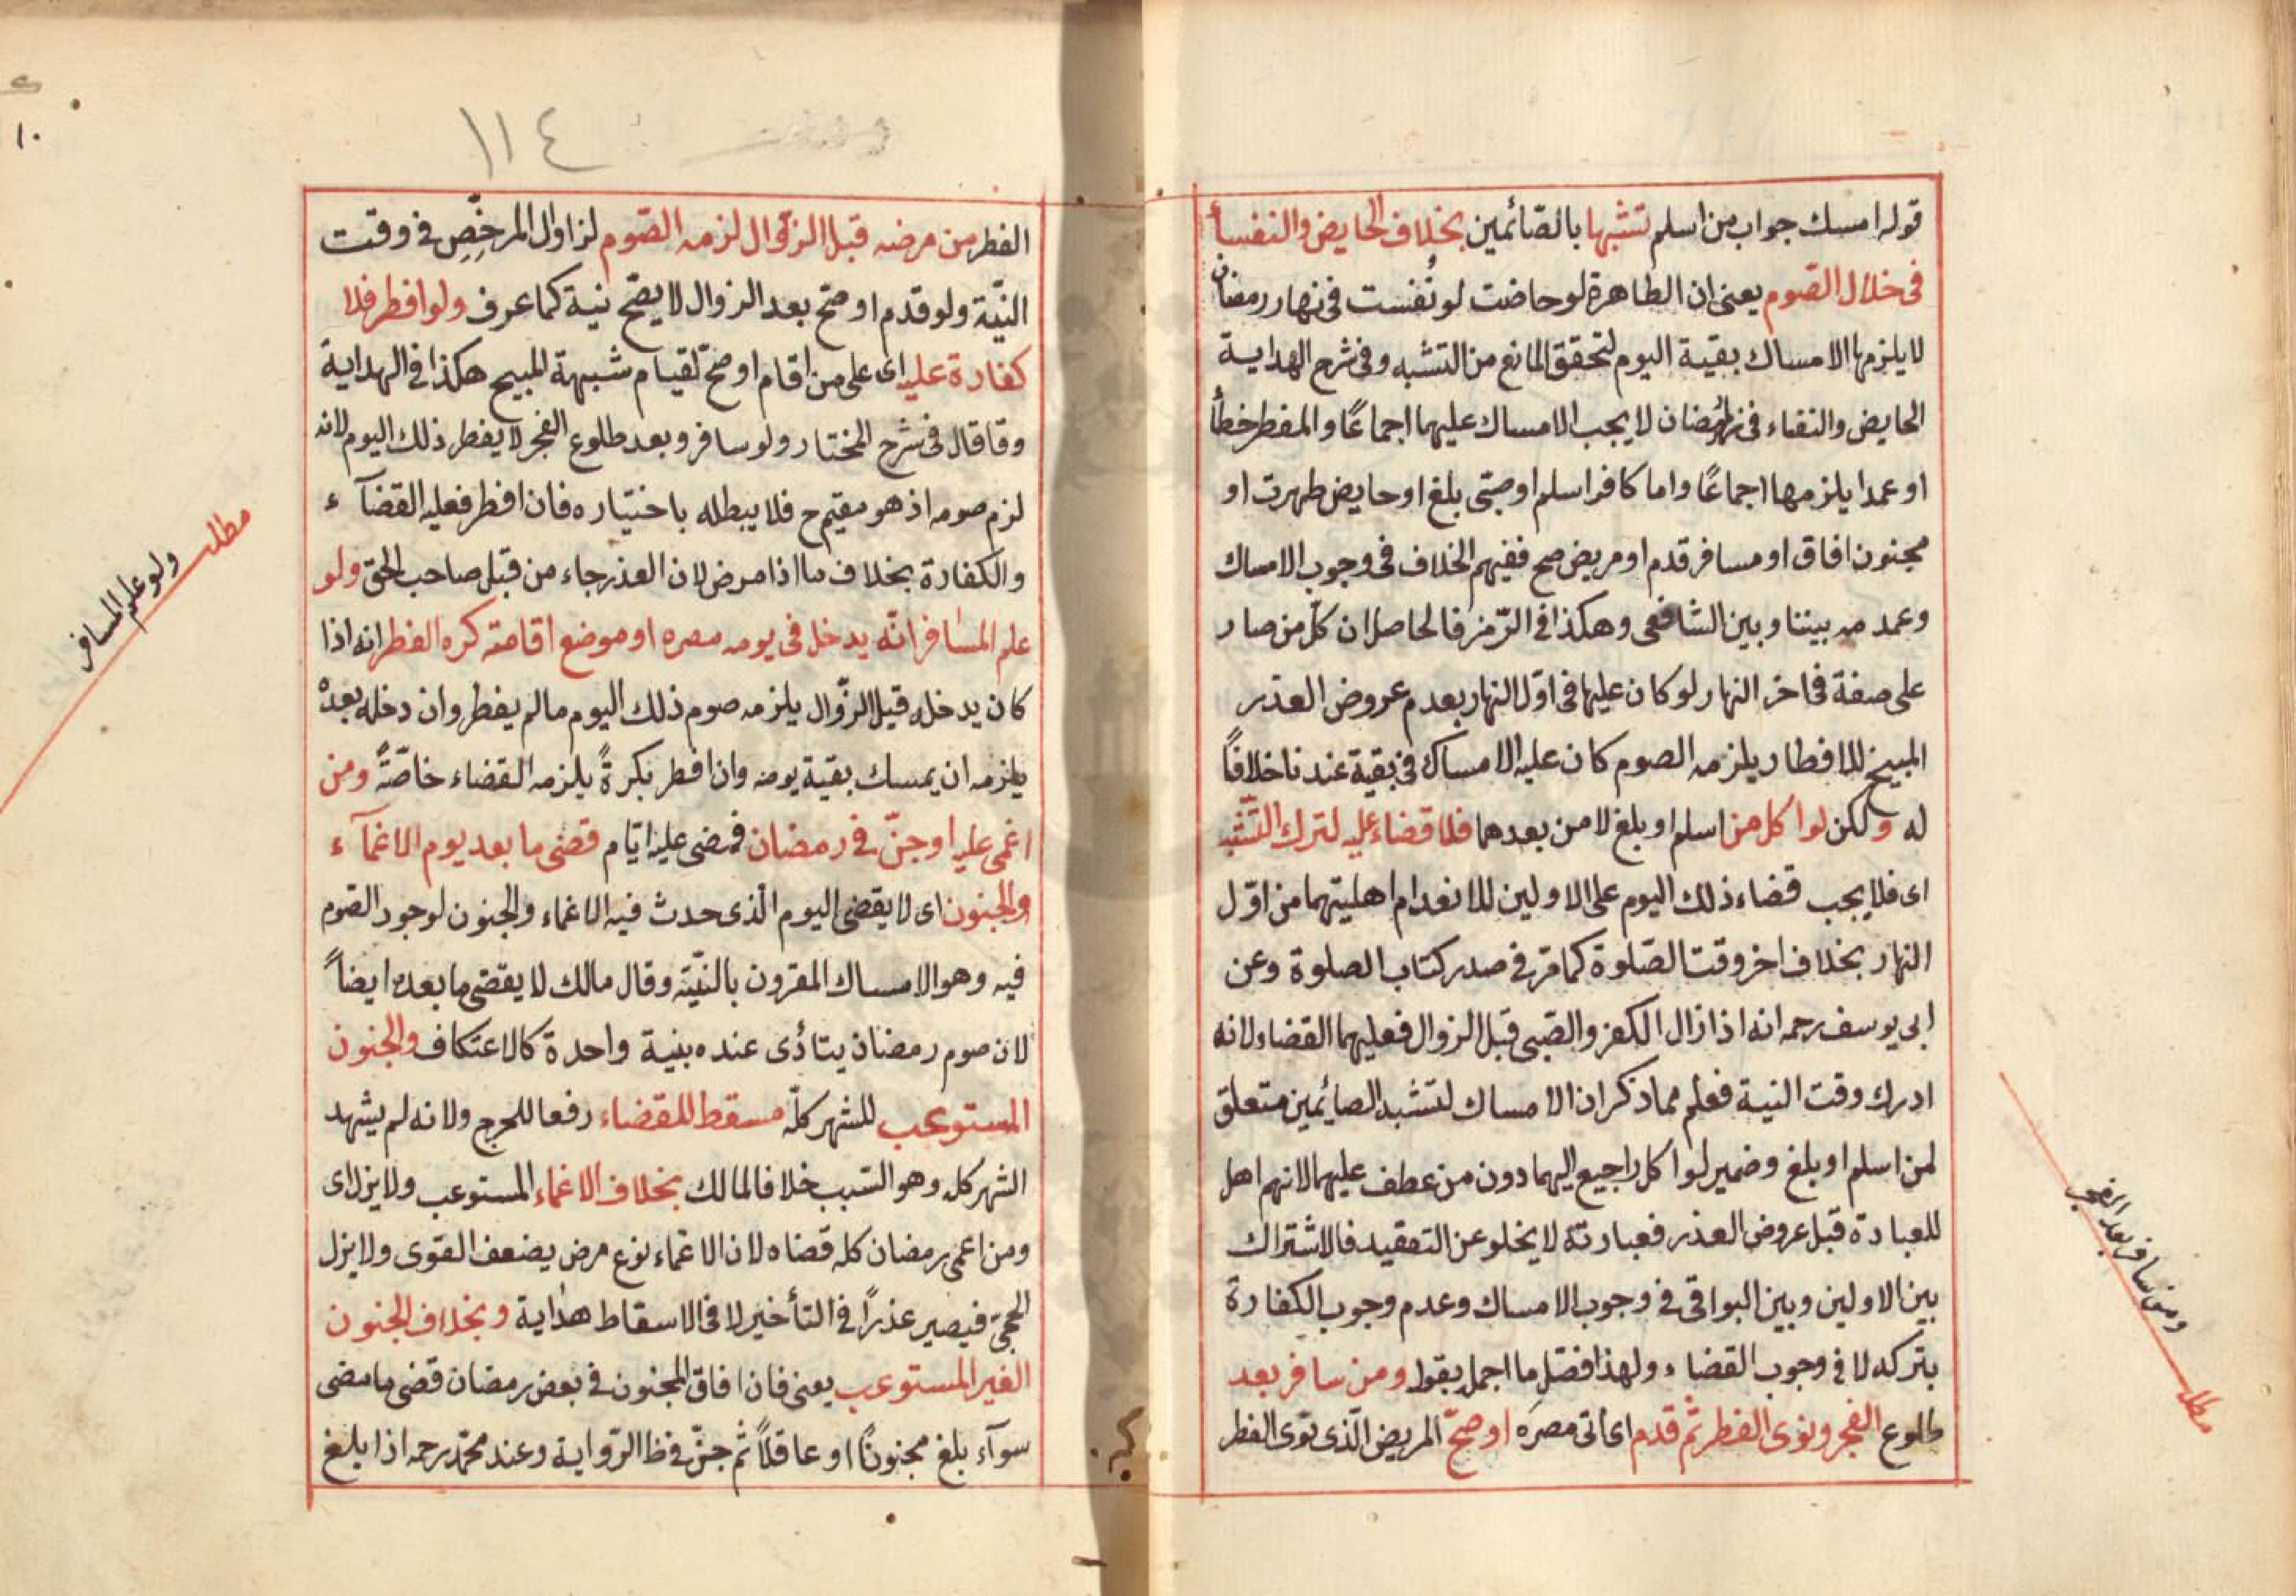 قوله امسك جواب من اسلم تشبها بالصّائمين بخلاف الحايض والنفسآ
فى خلال الصّوم يعنى ان الطاهرة لو حاضت لو نُفست فى نهار رمضان
لا يلزمها الامساك بقية اليوم لتحقق المانع من التشبه وفى شرح الهداية
الحايض والنفاء فى نهار رمضان لا يجب الامساك عليهما اجماعًا والمفطر خطأ
او عمدا يلزمها اجماعًا واما كافر اسلم او صبّى بلغ او حايض طهرت او
مجنون افاق او مسافر قدم او مريض صح ففيهم الخلاف فى وجوب الامساك
وعدمه بيننا وبين الشافعى وهكذا فى الرّمز فالحاصل ان كلّ من صار
على صفة فى اخر النهار لو كان عليها فى اوّل النهار بعدم عروض العذر
المبيح للافطار يلزمه الصوم كان عليه الامساك فى بقية عندنا خلافًا
له ولكن لو اكل من اسلم او بلغ لا من بعدهما فلا قضاء عليه لترك التشبّه
اى فلا يجب قضاء ذلك اليوم على الاولين للانعدام اهليتهما من اوّل
النهار بخلاف اخر وقت الصّلوة كما مرّ فى صدر كتاب الصلوة وعن
ابى يوسف رحمه انه اذا زال الكفر والصّبى قبل الزوال فعليهما القضاء لانه
ادرك وقت النية فعلم مما ذكر ان الامساك لتشبه الصائمين متعلق
لمن اسلم او بلغ وضمير لو اكل راجيع اليهما دون من عطف عليهما لانهم اهل
للعبادة قبل عروض العذر فعبارتة لا يخلو عن التعقيد فالاشتراك
بين الاولين وبين البواقى فى وجوب الامساك وعدم وجوب الكفارة
بتركه لا فى وجوب القضاء ولهذا فصّل ما اجمل بقوله ومن سافر بعد
طلوع الفجر ونوى الفطر ثم قدم اى اتى مصرَه او صحّ المريض الّذى نوى الفطر
ومن سافر بعد الفجر
مطلب
١١٤
١٠
الفطر من مرضه قبل الزوّال لزمه الصّوم لزاول المرخّص فى وقت
النيّة ولو قدم او صحّ بعد الزوال لا يصّح نية كما عرف ولو افطر فلا
كفارة عليه اى على من اقام او صحّ لقيام شبهة المبيح هكذا فى الهداية
وقاقال فى شرح المختار ولو سافر وبعد طلوع الفجر لا يفطر ذلك اليوم لانه
لزم صومه اذ هو مقيم ح فلا يبطله باختياره فان افطر فعليه القضآء
والكفارة بخلاف ما اذا مرض لان العذر جاء من قبل صاحب الحق ولو
علم المسافر انّه يدخل فى يومه مصره او موضع اقامته كره الفطر انه اذا
كان يدخله قبل الزوّال يلزمه صوم ذلك اليوم مالم يفطر وان دخله بعده
يلزمه ان يمسك بقية يومه وان افطر بكرةً يلزمه القضاء خاصّةً ومن
اغمى عليه او جنّ فى رمضان فمضى عليه ايّام قضى ما بعد يوم الاغمآء
والجنون اى لا يقضى اليوم الّذى حدث فيه الاغماء والجنون لوجود الصّوم
فيه وهو الامساك المقرون بالنيّة وقال مالك لا يقضى ما بعده ايضاً
لان صوم رمضان يتأدّى عنده بنية واحدة كالاعتكاف والجنون
المستوعب للشهر كلّه مسقط للقضاء رفعا للحرج ولانه لم يشهد
الشهر كله وهو السّبب خلافا لمالك بخلاف الاغماء المستوعب ولا يزل اى
ومن اغمى رمضان كله قضاه لان الاغماء نوع مرض يضعف القوى ولا يزل
الحجى فيصير عذراً فى التأخير لا فى الاسقاط هداية وبخلاف الجنون
الغير المستوعب يعنى فان افاق المجنون فى بعض رمضان قضى ما مضى
سوآء بلغ مجنونًا او عاقلاً ثم جنّ فى ظا الرّواية وعند محمّد رحمه اذا بلغ
مطلب
ولو علم المسافر